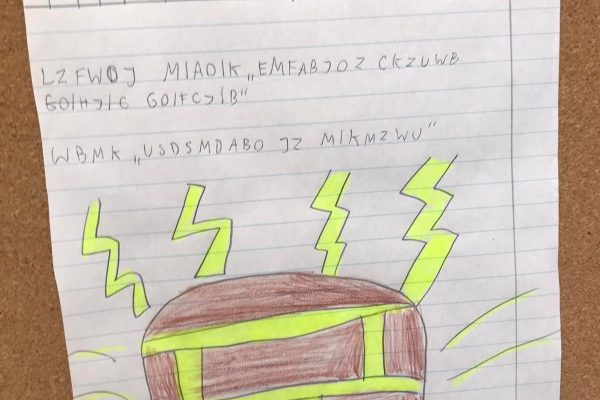 LZFWOJ MIAOIK „EMFABJOZ CKZUWB
GOIHJIE GOIFCJIB"
WBMK „USDSMDABO JZ MIKMZWU"